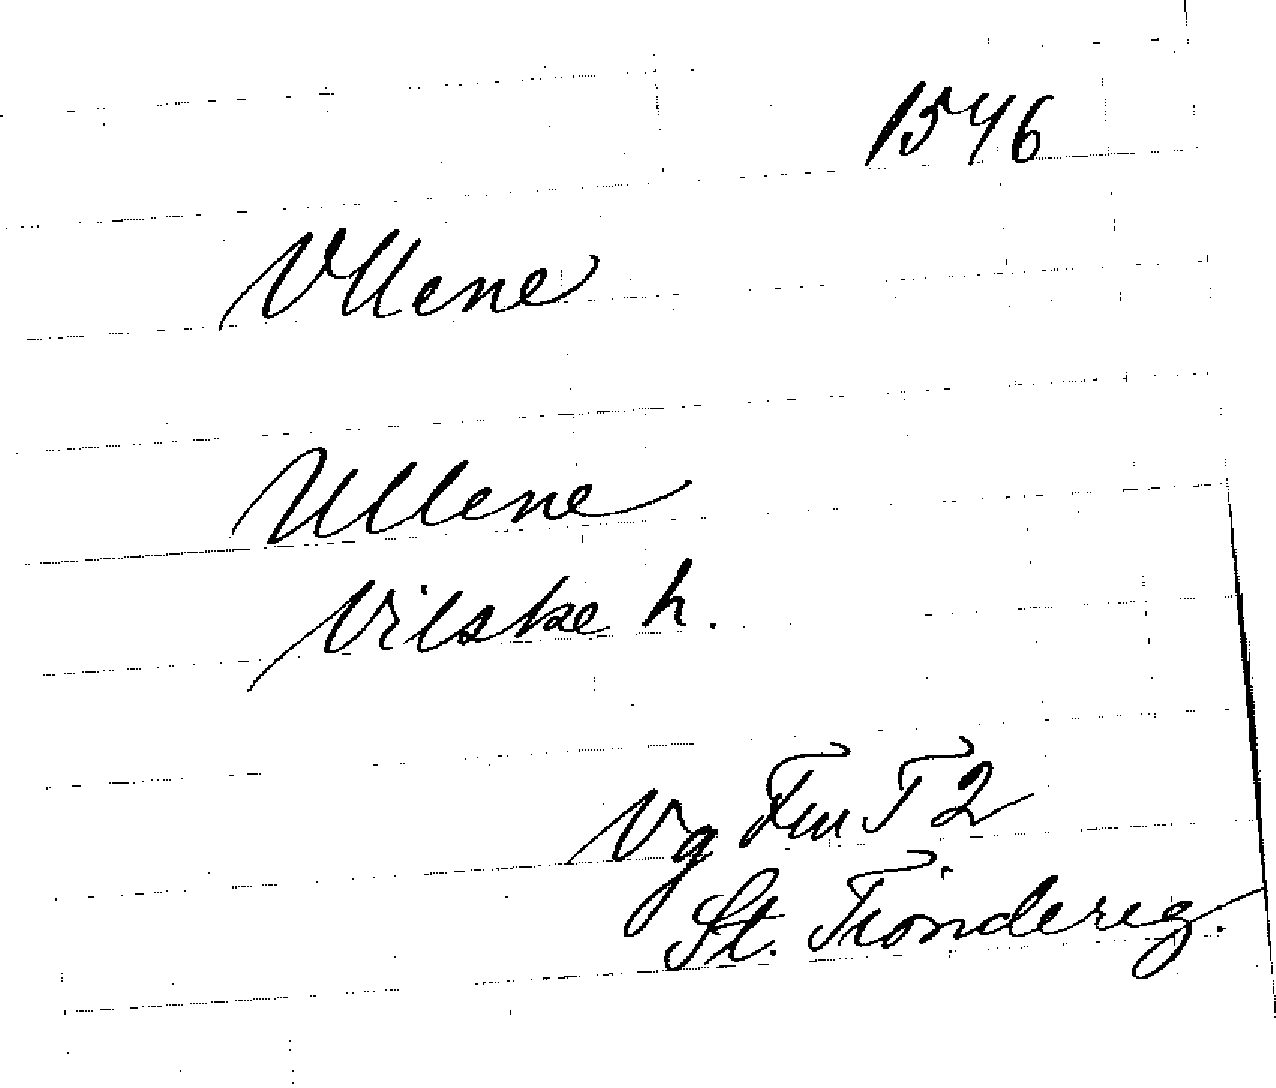 1546
Vllene
Ullene
Vilske h.
Vg Fru T 2
St. Tiondereg.